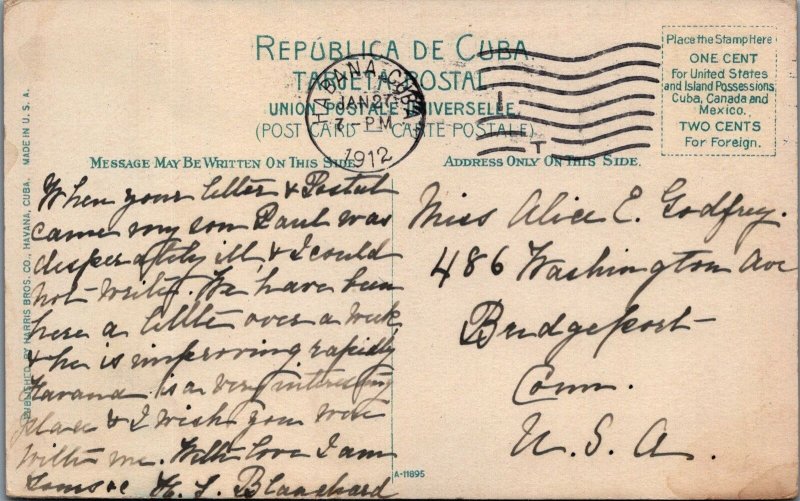 REPÚBLICA DE CUBA.
TARJETA POSTAL
UNION POSTALE UNIVERSELLE.
(POST CARD CARTE POSTALE)
HABANA, CUBA
JAN 27
7 - PM
1912
Place the Stamp Here
ONE CENT
For United States
and Island Possessions,
Cuba, Canada and
Mexico.
TWO CENTS
For Foreign.
MESSAGE MAY BE WRITTEN ON THIS SIDE.
ADDRESS ONLY ON THIS SIDE.
PUBLISHED BY HARRIS BROS. CO., HAVANA, CUBA. MADE IN U. S. A.
When your letter & Postal
came my son Paul was
desperately ill, & I could
not write. We have been
here a little over a week,
& he is improving rapidly
Havana is a very interesting
place & I wish you were
with me. With love I am
H. L. Blanchard
A-11895
Miss Alice E. Godfrey.
486 Washington Ave
Bridgeport
Conn.
U. S. A.